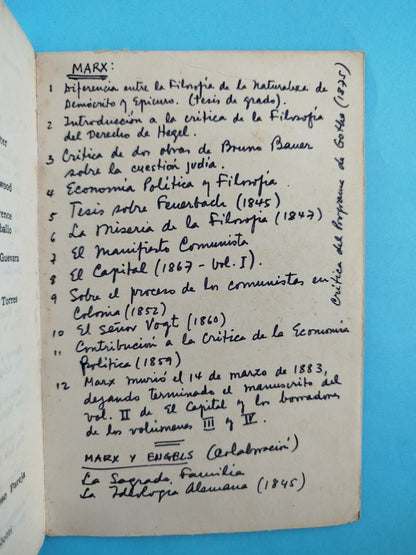 MARX:
1 Diferencia entre la Filosofía de la Naturaleza de
Demócrito y Epicuro. (Tesis de grado).
2 Introducción a la crítica de la Filosofía
del Derecho de Hegel.
3 Crítica de dos obras de Bruno Bauer
sobre la cuestión judía.
4 Economía Política y Filosofía.
5 Tesis sobre Feuerbach (1845)
6 La Miseria de la Filosofía (1847)
7 El Manifiesto Comunista
8 El Capital (1867 - Vol. I).
9 Sobre el proceso de los comunistas en
Colonia (1852)
10 El Señor Vogt (1860)
11 Contribución a la Crítica de la Economía
Política (1859)
12 Marx murió el 14 de marzo de 1883,
dejando terminado el manuscrito del
vol. II de El Capital y los borradores
de los volúmenes III y IV.
MARX Y ENGELS (Colaboración)
La Sagrada Familia
La Ideología Alemana (1845)
Crítica del Programa de Gotha (1875)
ter
wood
rence
ballo
Guevara
Torres
oso Pareja